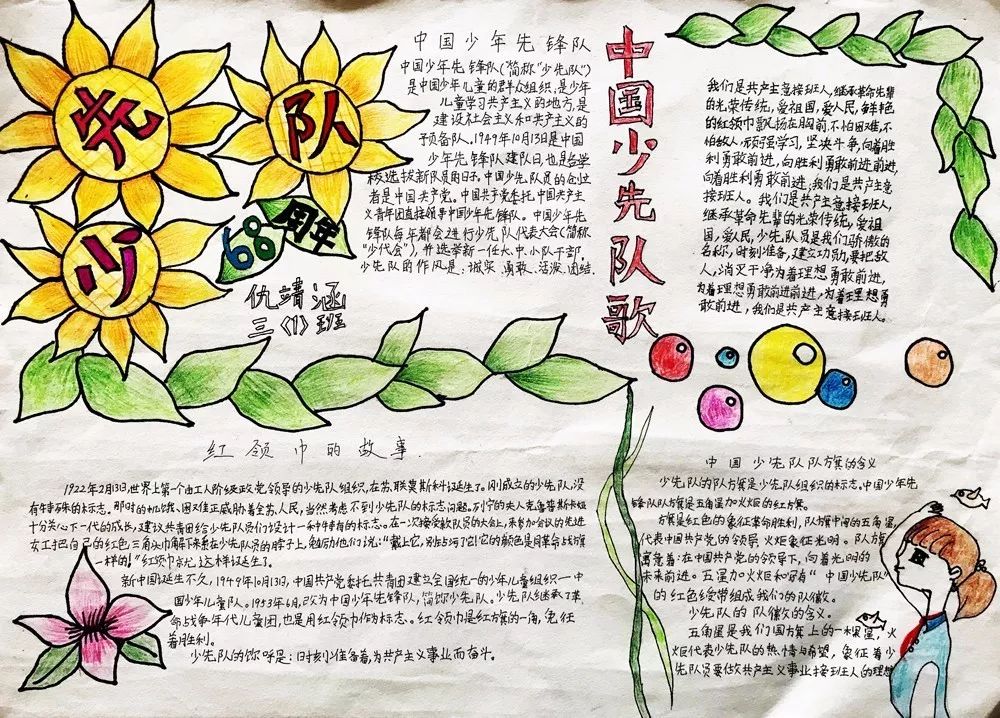 少
先
队
68
周年
仇靖涵
三〈1〉班
中国少年先锋队
中国少年先锋队(简称“少先队”)
是中国少年儿童的群众组织,是少年
儿童学习共产主义的地方,是
建设社会主义和共产主义的
预备队。1949年10月13是中国
少年先锋队建队日,也是各学
校选拔新队员的日子。中国少先队员的创立
者是中国共产党。中国共产党委托中国共产主
义青年团直接领导中国少年先锋队。中国少年先
锋队每年都会进行少先队代表大会(简称
“少代会”),并选举新一任大、中、小队干部。
少先队的作风是:诚实、勇敢、活泼、团结
中国少先队歌
我们是共产主意接班人,继承革命先辈
的光荣传统,爱祖国,爱人民,鲜艳
的红领巾飘扬在胸前,不怕困难,不
怕敌人,顽强学习,坚决斗争,向着胜
利勇敢前进,向胜利勇敢前进前进,
向着胜利勇敢前进,我们是共产主意
接班人。我们是共产主意接班人,
继承革命先辈的光荣传统,爱祖
国,爱人民,少先队员是我们骄傲的
名称,时刻准备,建立功勋,要把敌
人,消灭干净,为着理想勇敢前进,
为着理想勇敢前进前进,为着理想勇
敢前进,我们是共产主意接班人。
红领巾的故事
1922年2月13日,世界上第一个由工人阶级政党领导的少先队组织,在苏联莫斯科诞生了。刚成立的少先队,没
有特殊的标志。那时的饥饿、困难正威胁着全苏人民,当然考虑不到少先队的标志问题。列宁的夫人克鲁普斯卡娅
十分关心下一代的成长,建议共青团给少先队员们设计一种特有的标志。在一次接受新队员的大会上,来参加会议的先进
女工把自己的红色三角头巾解下来系在少先队员的脖子上,勉励他们说:“戴上它,别玷污了它!它的颜色是同革命战旗
一样的!”红领巾就这样诞生了。
新中国诞生不久,1949年10月13日,中国共产党委托共青团建立全国统一的少年儿童组织一中
国少年儿童队。1953年6月,改为中国少年先锋队,简称少先队。少先队继承了革
命战争年代儿童团,也是用红领巾作为标志。红领巾是红旗的一角,象征
着胜利。
少先队的呼号是:时刻准备着,为共产主义事业而奋斗。
中国少先队队旗的含义
少先队的队旗是少先队组织的标志。中国少年先
锋队队旗是五角星加火炬的红旗。
旗是红色的象征革命胜利,队旗中间的五角星
代表中国共产党的领导 火炬象征光明。队旗
寓意着:在中国共产党的领导下,向着光明的
未来前进。五星加火炬和写着“中国少先队”
的红色绶带组成我们的队徽。
少先队的队徽的含义。
五角星是我们国旗上的一颗星,火
炬代表少先队的热情与希望,象征着少
先队员要做共产主义事业接班人的理想